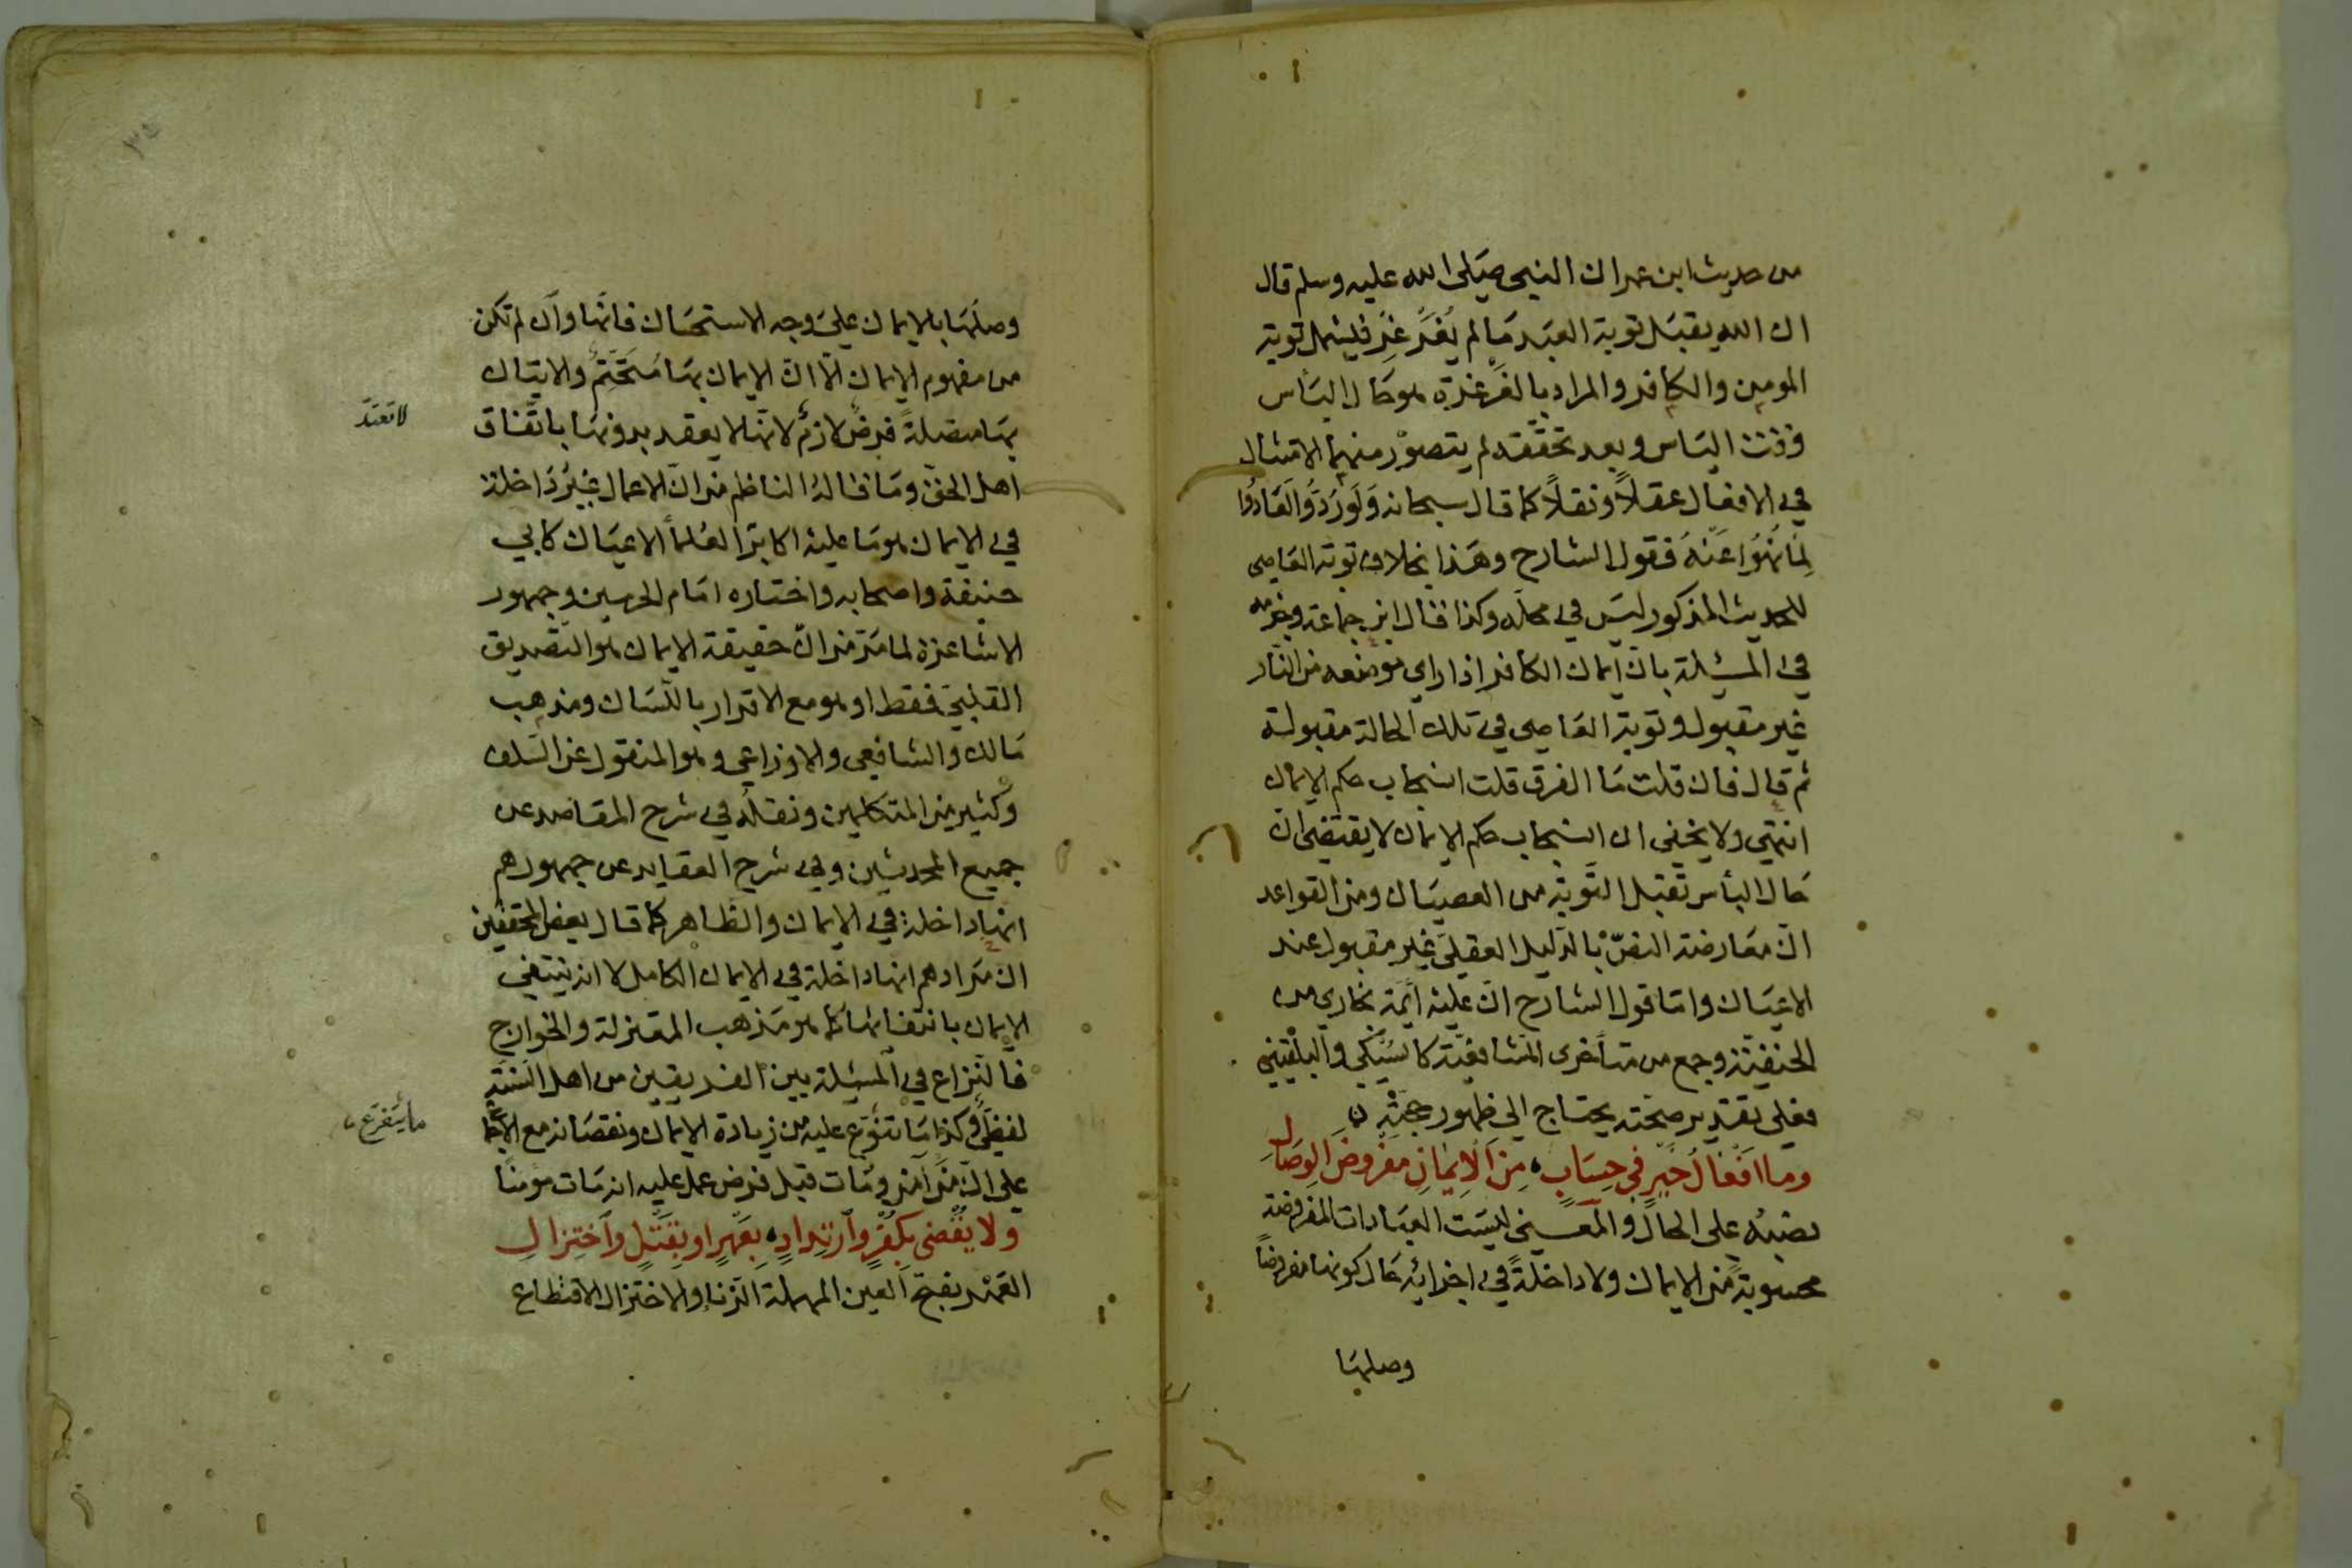 من حديث ابن عمر ان النبي صلى الله عليه وسلم قال
ان الله يقبل توبة العبد ما لم يُغَرْغِر فليشمل توبة
المومن والكافر والمراد بالغرغرة هو حال البأس
فوقت الياس وبعد تحققه لم يتصور منهما الامتثال
في الافعال عقلاً ونقلاً كما قال سبحانه وَلَو رُدُّوا لَعَادُوا
لِمَا نُهُوا عَنْهُ فقول الشارح وهَذا بخلاف توبة العَاصي
للحديث المذكور ليسَ في محلّه وكذا قال ابن جماعة وجزمه
في المسئلة بانّ ايمان الكافر اذا راي موضعه من النّار
غير مقبول وتوبة العَاصي في تلك الحالة مقبولة
ثم قال فان قلت مَا الفرق قلت استصحاب حكم الايمان
انتهي ولا يخفى ان استصحاب حكم الايمان لا يقتضي ان
حَال البأس تقبل التّوبة من العصيَان ومن القواعد
انّ معَارضة النصّ بالدّليل العقليّ غير مقبول عند
الاعيَان وامّا قول الشارح انّ عليه أيمّة بخاري من
الحنفيّة وجمع من متأخرى الشافعيّة كالسُّبكي والبلقيني
فعلى تقدير صحّته يحتاج الي ظهور حجّتهِ
وما افعَالُ خَيرٍ فى حِسَابٍ مِنَ الاِيمَانِ مَفْرُوضَ الوِصَالِ
نصبُه على الحال والمعنى ليسَت العبَادات المفروضة
محسوبةً من الايمان ولا داخلةً في اجزائه حَال كونها مفروضاً
وصلهَا
وصلهَا بالايمان على وجه الاستحسَان فانّها وان لم تكن
من مفهوم الايمان الّا انّ الايمان بهَا مُتَحَتِّمٌ والاتيان
بهَا متصلةً فرضٌ لازمٌ لانّها لا يعقد بدونهَا باتّفاق
لا تعتدّ
اهل الحقّ ومَا قالهُ الناظم من انّ الاعمال غيرُ دَاخلة
في الايمان هو مَا عليه اكابرُ العُلمأ الاعيَان كابي
حنيفة واصحابه واختاره امَام الحرمين وجمهور
الاشاعرة لما مَرّ من انّ حقيقة الايمان هو التّصديق
القلبيّ فقط او هو مع الاقرار باللّسَان ومذهب
مَالك والشافعي والاوزاعي وهو المنقول عن السّلف
وكثير من المتكلمين ونقلهُ في شرح المقاصد عن
جميع المحدثين وفي شرح العقايد عن جمهورهم
انها داخلة في الايمان والظاهر كما قال بعض المحققين
ان مَرادهم انها داخلة في الايمان الكامل لا انه ينتفي
الايمان بانتفائها كما هو مَذهب المعتزلة والخوارج
فالنّزاع في المسئلة بين الفريقين من اهل السّنّة
لفظي وكذا مَا يتنوّع عليه من زيادة الايمان ونقصَانه مع الاجمَاع
ما يتفرّع
على انّ مَن آمَن ومَات قبل فرض عمل عليه انه مَات مؤمنًا
ولا يُقْضى بِكُفْرٍ وارْتِدادٍ بِعَهْرٍ او بِقَتْلٍ واخْتِزَالِ
العَهْر بفتح العين المهملة الزنا والاختزال الاقتطاع